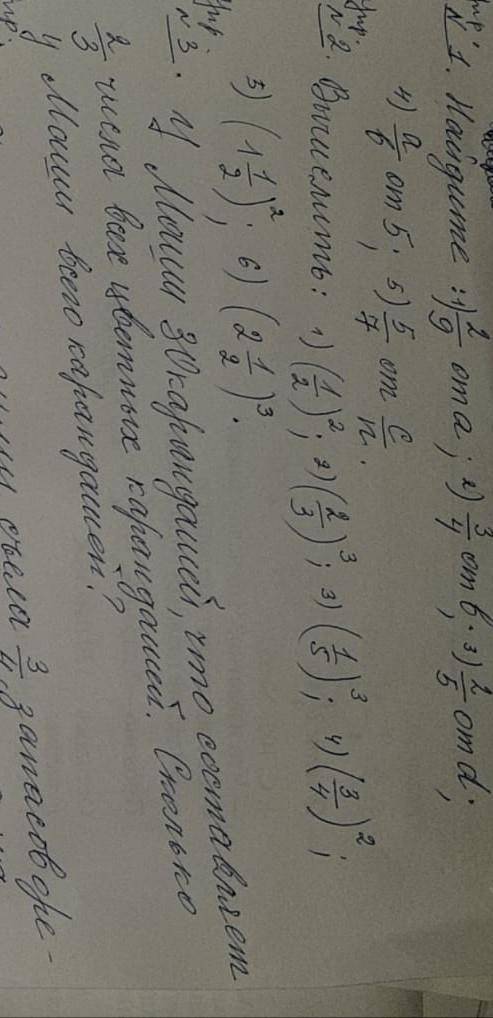 Упр.
№ 1. Найдите: 1) 2/9 от a; 2) 3/4 от b; 3) 2/5 от d;
4) a/b от 5; 5) 5/7 от c/n.
Упр.
№ 2. Вычислить: 1) (1/2)²; 2) (2/3)³; 3) (1/5)³; 4) (3/4)²;
5) (1 1/2)²; 6) (2 1/2)³.
Упр.
№ 3. У Маши 30 карандашей, что составляет
2/3 числа всех цветных карандашей. Сколько
у Маши всего карандашей?
Упр.
съела 3/4 запасов